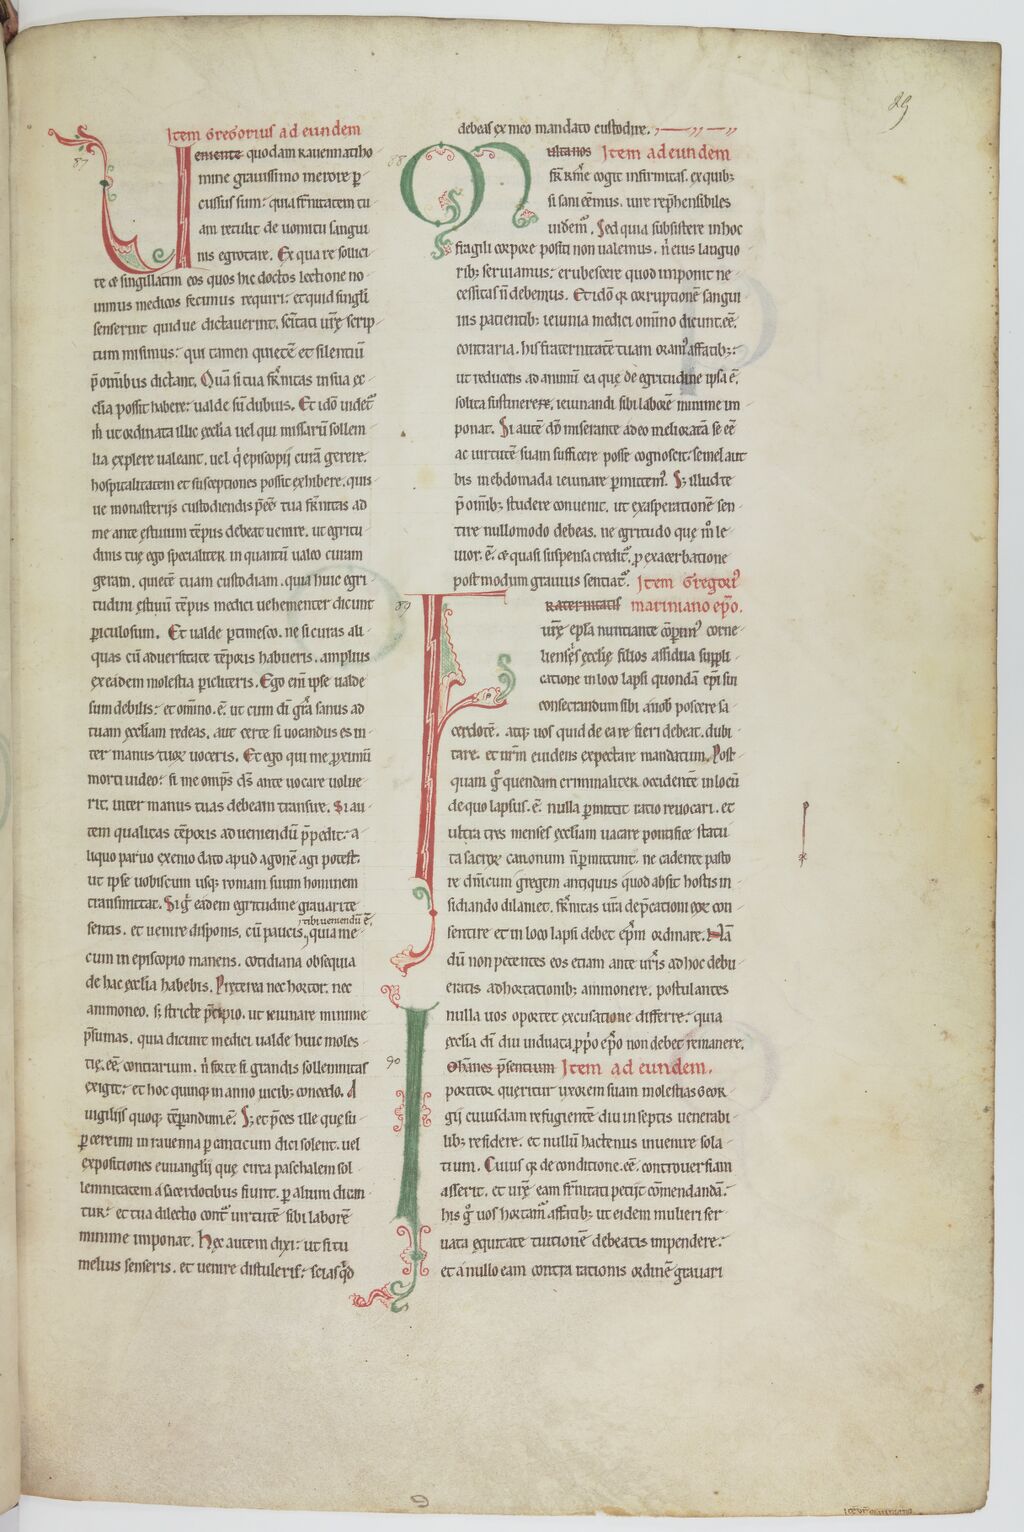 89
Item Gregorius ad eundem
87
Veniente quodam Rauennatiho
mine grauissimo merore p
cussus sum: quia frnitatem tu
am retulit de uomitu sangui
nis egrotare. Ex qua re sollici
te & singillatim eos quos hic doctos lectione no
uimus medicos fecimus requiri: et quid singli
senserint quidue dictauerint, scitati urę scrip
tum misimus: qui tamen quietē et silentiū
p̄ omībus dictant. Quā si tua frnitas in sua ęc
clia possit habere: ualde sū dubius. Et idō uidet
m ut ordinata illic ęcclia uel qui missarū sollem
nia explere ualeant, uel q episcopii curā gerere,
hospitalitatem et susceptiones possit exhibere, quis
ue monasterijs custodiendis pēe tua frnitas ad
me ante ęstiuum tēpus debeat uenire, ut egritu
dinis tuę ego specialiter in quantū ualeo curam
geram, quietē tuam custodiam, quia huic egri
tudini ęstiuū tēpus medici uehementer dicunt
periculosum. Et ualde ptimesco, ne si curas ali
quas cū aduersitate tēporis habueris, amplius
ex eadem molestia picliteris. Ego em ipse ualde
sum debilis: et omino .ē. ut cum dī gra sanus ad
tuam ęccliam redeas, aut certe si uocandus es in
ter manus tuoꝝ uoceris. Et ego qui me pximū
morti uideo: si me omps ds ante uocare uolue
rit, inter manus tuas debeam transire. Si au
tem qualitas tēporis ad ueniendū pepedit: a
liquo paruo exenio dato apud agonē agi potest,
ut ipse uobiscum usq; romam suum hominem
transmittat. Si g eadem egritudine grauari te
sentis, et uenire disponis, cū paucis, tibi ueniendū ē, quia me
cum in episcopio manens, cotidiana obsequia
de hac ęcclia habebis. Pręterea nec hortor, nec
ammoneo, s; stricte pcipio, ut ieiunare minime
psumas, quia dicunt medici ualde huic moles
tię .eē. contrarium, n forte si grandis sollemnitas
exigit: et hoc quinq; in anno uicib; concedo. A
uigilijs quoq; tēperandum .ē. S; et pces ille que su
per cereum in rauenna p canticum dici solent, uel
expositiones euuanglij quę circa paschalem sol
lemnitatem a sacerdotibus fiunt, p alium dican
tur: et tua dilectio cont uirtutē sibi laborē
minime imponat. Hęc autem dixi: ut si tu
melius senseris, et uenire distuleris: scias qd
debeas ex meo mandato custodire.
88
Multanos Item ad eundem
cogit infirmitas, ex quib;
si sani eēmus, iure rephensibiles
uidem. Sed quia subsistere in hoc
fragili corpore positi non ualemus, n eius languo
rib; seruiamus: erubescere quod imponit ne
cessitas n debemus. Et idō q corruptionē sangui
nis patientib; ieiunia medici omino dicunt .eē.
contraria, his fraternitatē tuam oram affatib;:
ut reducens ad animū ea que de egritudine ipsa ē,
solita sustinere, ieiunandi sibi laborē minime im
ponat. Si autē dō miserante adeo melioratā se eē
ac uirtutē suam sufficere posse cognoscit: semel aut
bis in ebdomada ieiunare pmittem. S; illud te
p̄ omib; studere conuenit, ut exasperationē sen
tire nullomodo debeas, ne egritudo quę m le
uior .ē. & quasi suspensa credit, p exacerbatione
postmodum grauius sentiat. Item Gregori
89
Fraternitatis mariniano epo.
urę epla nuntiante cōperim corne
lienses ęcclię filios assidua suppli
catione in loco lapsi quondā epi sui
consecrandum sibi anob poscere sa
cerdotē, atq; uos quid de ea re fieri debeat, dubi
tare, et urm euidens expectare mandatum. Post
quam g quendam criminaliter occidentē in locū
de quo lapsus .ē. nulla pmittit ratio reuocari, et
ultra tres menses ęccliam uacare pontifice statu
ta sacroꝝ canonum n pmittunt, ne cadente pasto
re dnicum gregem antiquus quod absit hostis in
sidiando dilaniet, frnitas ura depcationi eoꝝ con
sentire et in loco lapsi debet epm ordinare. Nā
dū non petentes eos etiam ante uris ad hoc debu
eratis adhortationib; ammonere, postulantes
nulla uos oportet excusatione differre: quia
ęcclia dī diu uiduata pprio epo non debet remanere.
90
Iohannes psentium Item ad eundem.
portitor queritur uxorem suam molestias Geor
gij cuiusdam refugientē diu in septis uenerabi
lib; residere, et nullū hactenus inuenire sola
tium. Cuius q de conditione .eē. controuersiam
asserit, et urę eam frnitati petijt cōmendandā:
his g uos hortam affatib; ut eidem mulieri ser
uata ęquitate tuitionē debeatis impendere:
et anullo eam contra rationis ordinē grauari